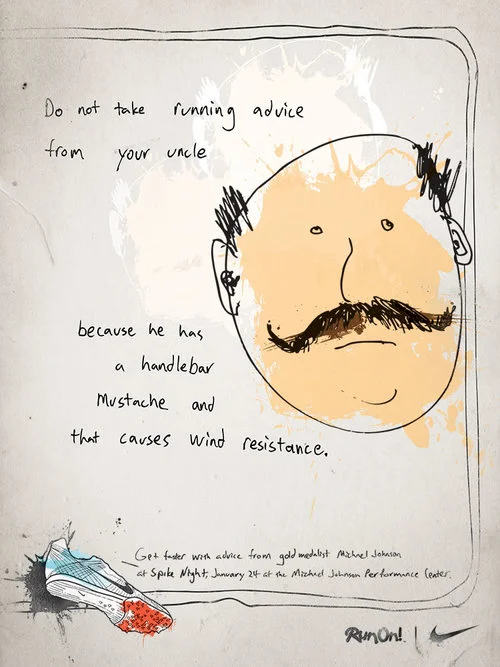 Do not take running advice
from your uncle
because he has
a handlebar
Mustache and
that causes wind resistance.
Get faster with advice from gold medalist Michael Johnson
at Spike Night, January 24 at the Michael Johnson Performance Center.
RunOn!